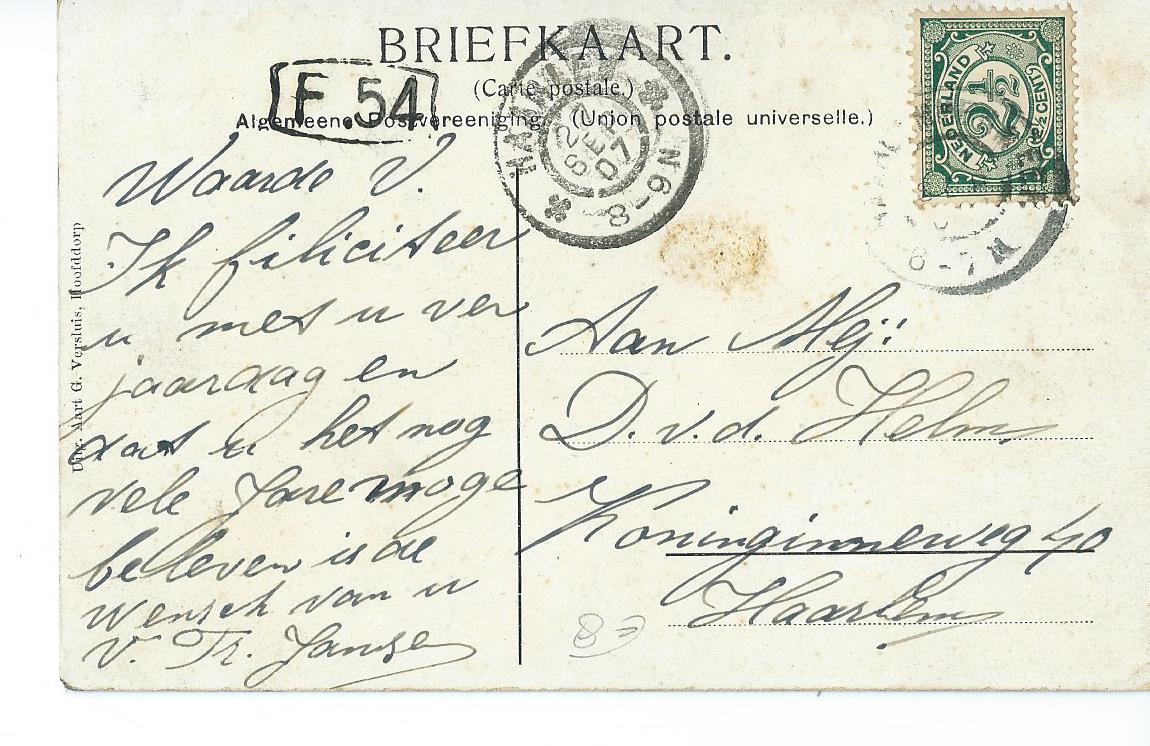 BRIEFKAART.
(Carte postale.)
Algemeene Postvereeniging. (Union postale universelle.)
F. 54
HAARLEM
2 SEP 07
8-9N
NEDERLAND
2½
2½ CENT
6-7N
Uitg. Aart G. Versluis, Hoofddorp
Waarde V.
Ik filiciteer
u met u ver
jaardag en
dat u het nog
vele Jare moge
beleven is de
wensch van u
V. Tr. Jansen
Aan Mej:
D. v. d. Helm
Koninginneweg 40
Haarlem
€8